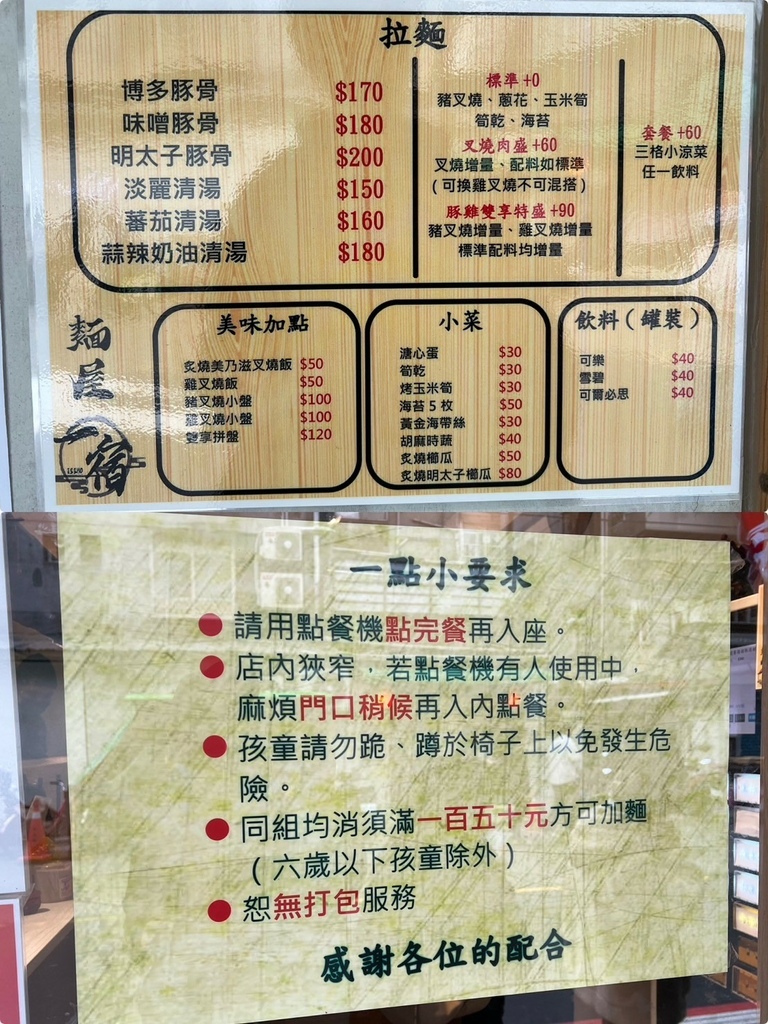 拉麵
博多豚骨 $170
味噌豚骨 $180
明太子豚骨 $200
淡麗清湯 $150
蕃茄清湯 $160
蒜辣奶油清湯 $180
標準+0
豬叉燒、蔥花、玉米筍
筍乾、海苔
叉燒肉盛+60
叉燒增量、配料如標準
(可換雞叉燒不可混搭)
豚雞雙享特盛+90
豬叉燒增量、雞叉燒增量
標準配料均增量
套餐+60
三格小涼菜
任一飲料
麵屋
一宿
ISSHO
美味加點
炙燒美乃滋叉燒飯 $50
雞叉燒飯 $50
豬叉燒小盤 $100
雞叉燒小盤 $100
雙享拼盤 $120
小菜
溏心蛋 $30
筍乾 $30
烤玉米筍 $30
海苔5枚 $50
黃金海帶絲 $30
胡麻時蔬 $40
炙燒櫛瓜 $50
炙燒明太子櫛瓜 $80
飲料(罐裝)
可樂 $40
雪碧 $40
可爾必思 $40
一點小要求
● 請用點餐機點完餐再入座。
● 店內狹窄,若點餐機有人使用中,
麻煩門口稍候再入內點餐。
● 孩童請勿跪、蹲於椅子上以免發生危
險。
● 同組均消須滿一百五十元方可加麵
(六歲以下孩童除外)
● 恕無打包服務
感謝各位的配合